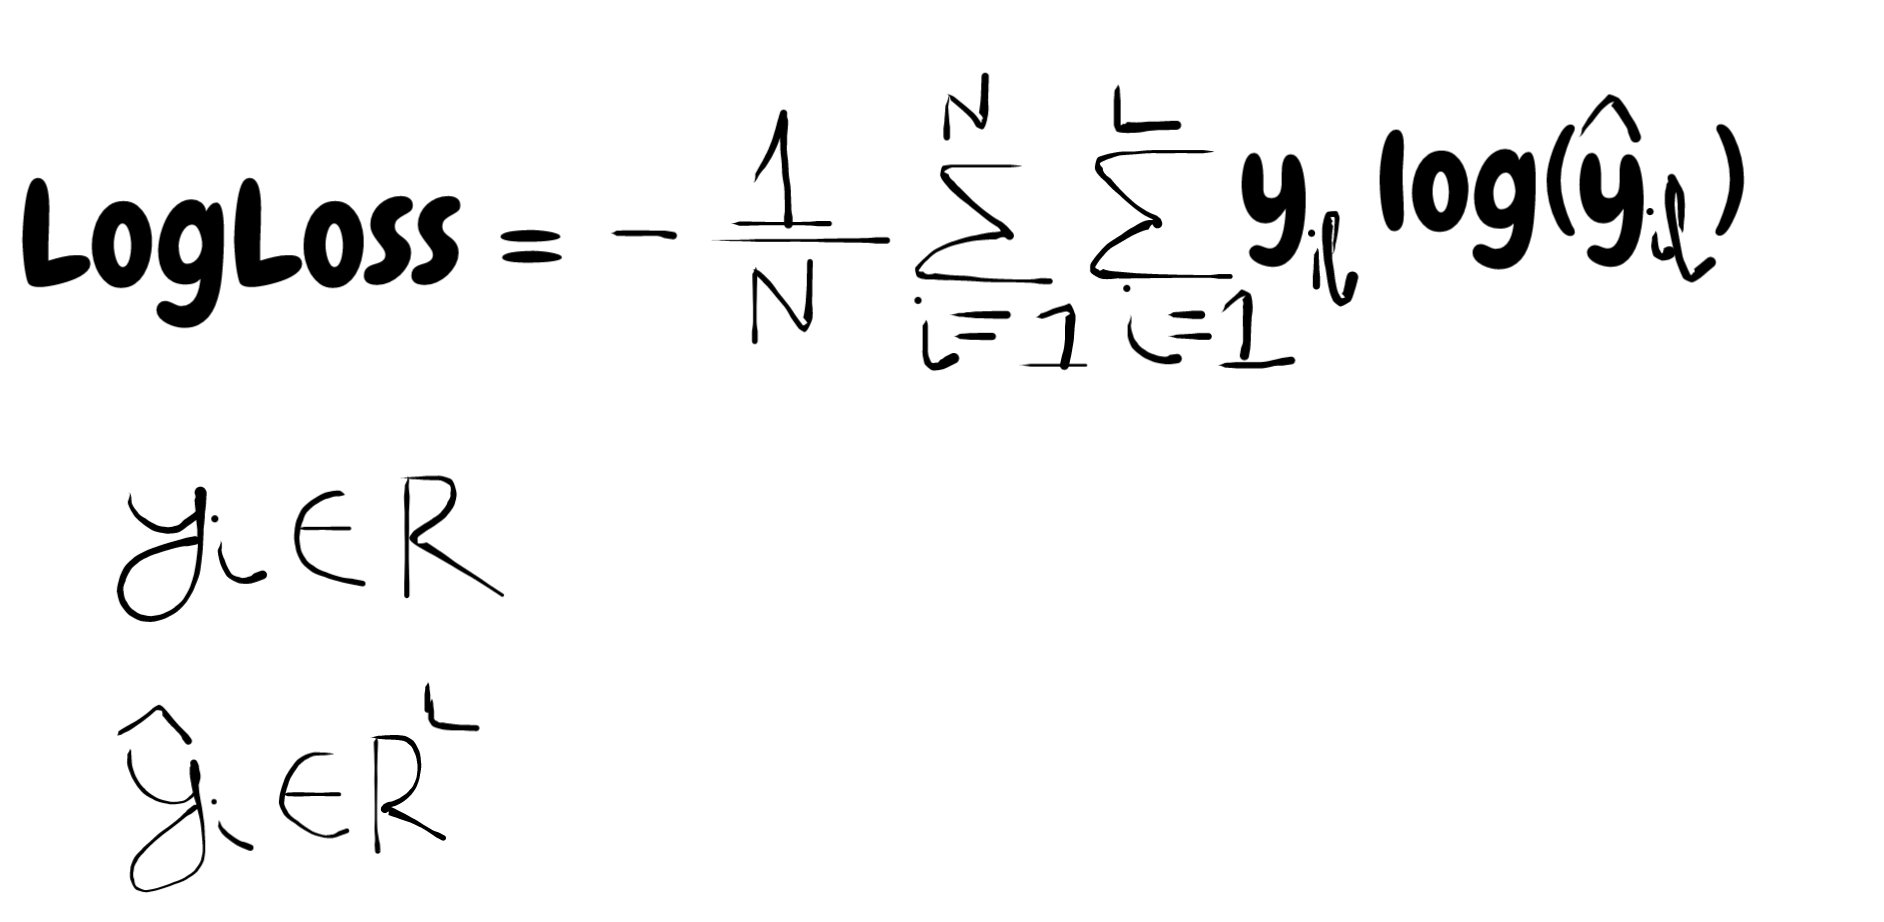 LogLoss = - 1/N ∑_{i=1}^{N} ∑_{i=1}^{L} y_{il} log(ŷ_{il})
y_i ∈ R
ŷ_i ∈ R^L